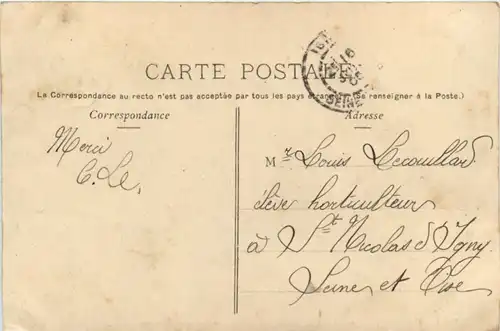 CARTE POSTALE
La Correspondance au recto n'est pas acceptée par tous les pays étrangers (Se renseigner à la Poste.)
Correspondance
Adresse
Merci
C. Le,
Mr Louis Lecouillard
élève horticulteur
à St Nicolas d'Igny
Seine et Oise
SEINE